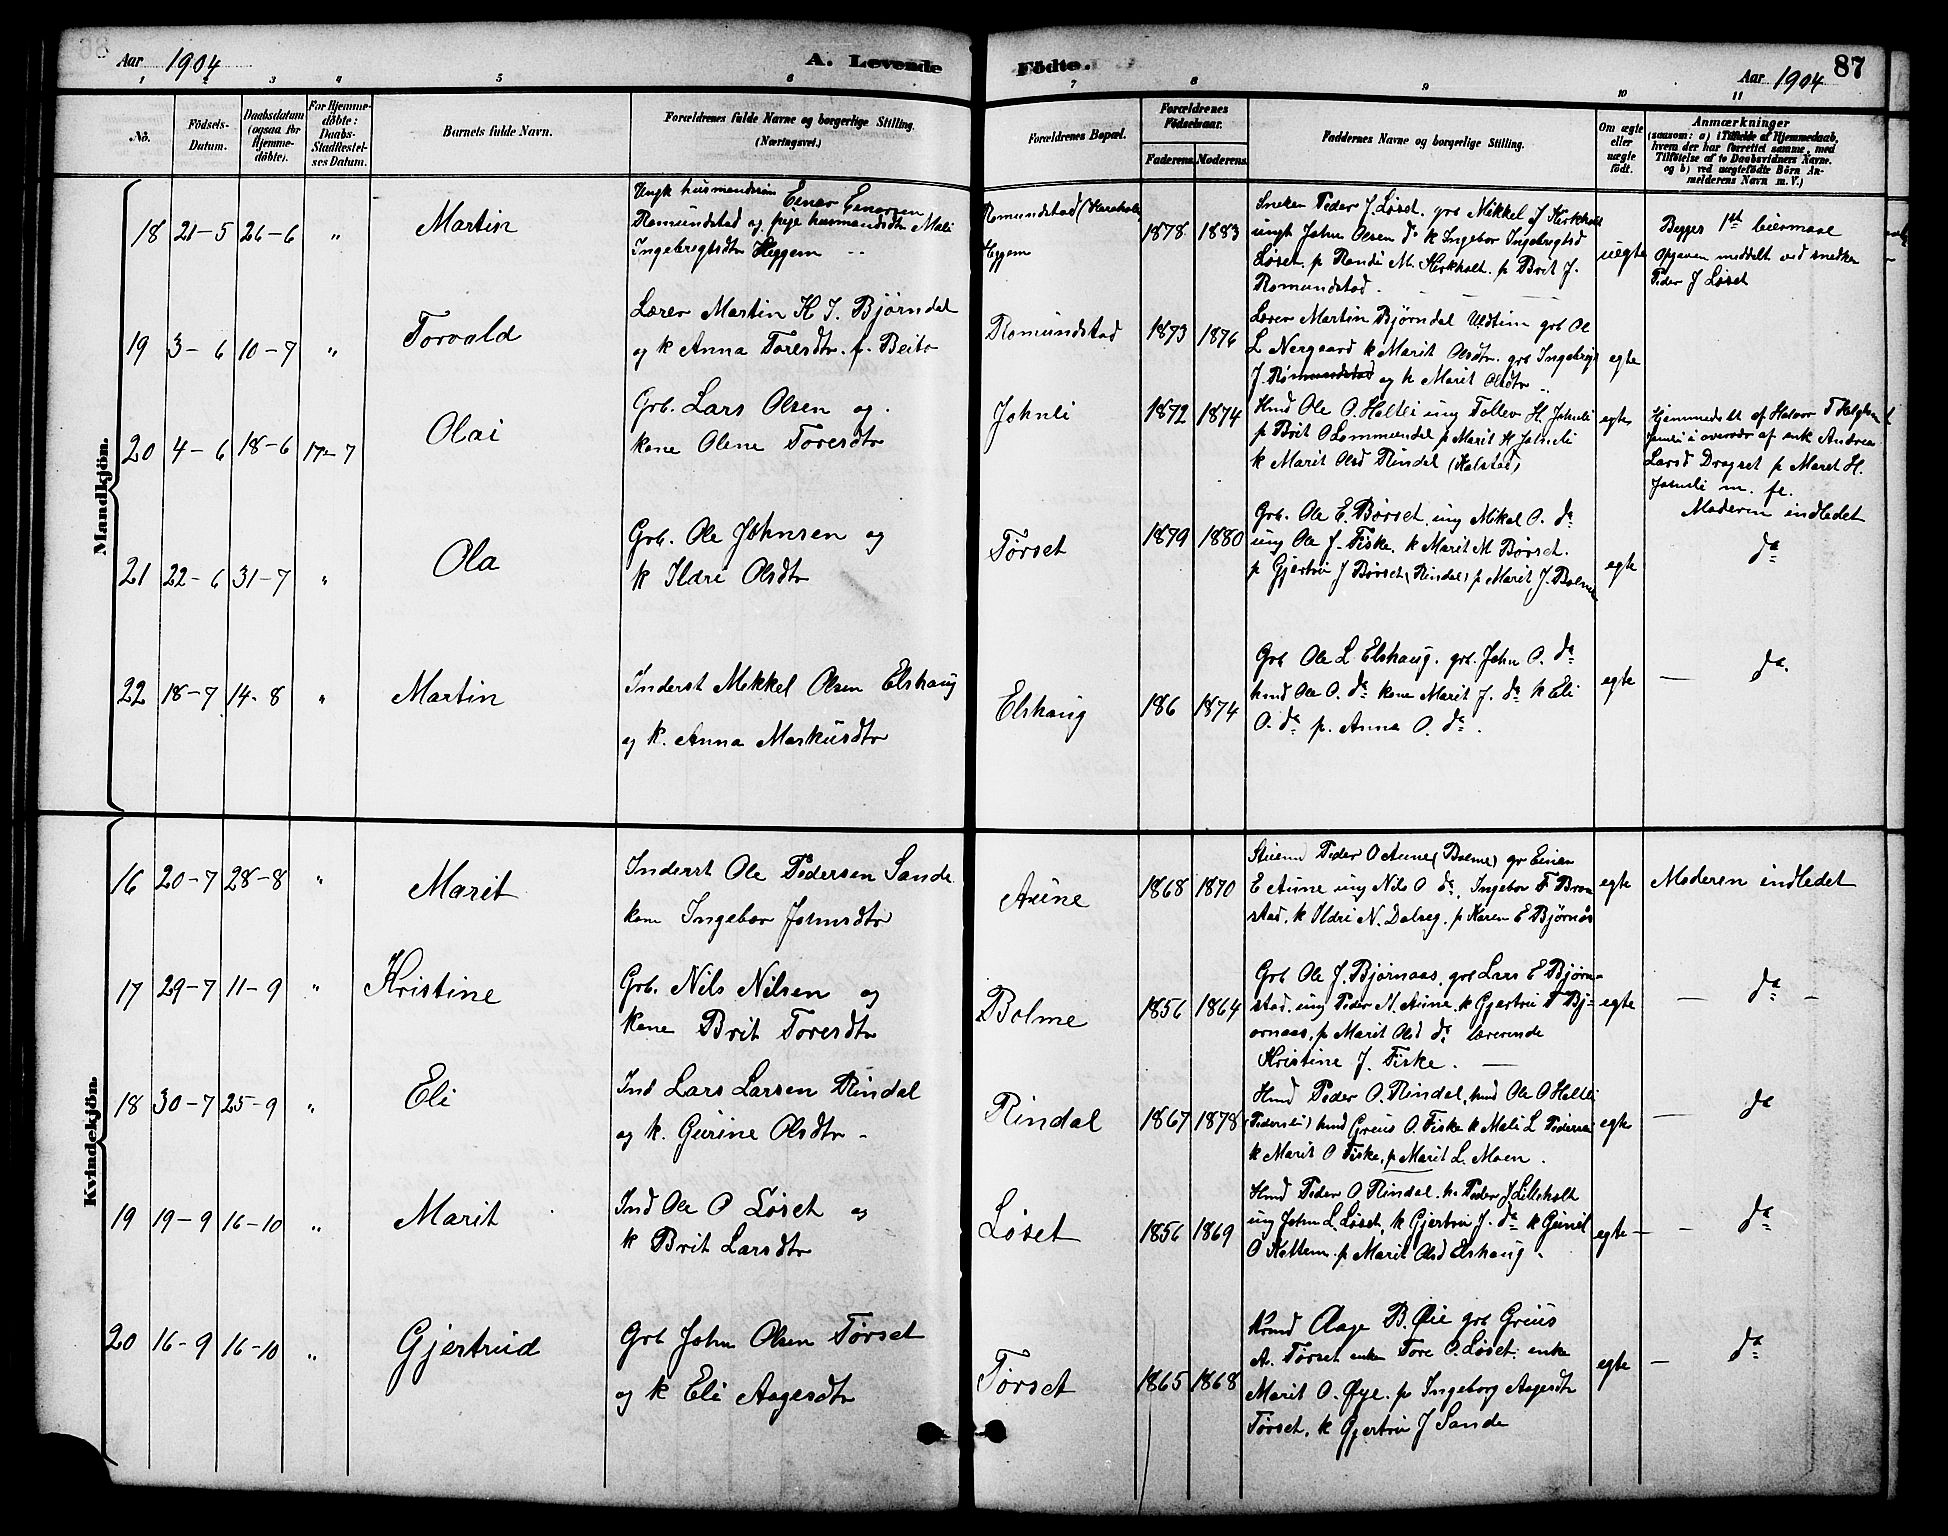 Aar 1904
A. Levende
Fødte.
Aar 1904
87
1 2 3 4 5 6 7 8 9 10 11
No.
Fødsels-
Datum.
Daabsdatum
(ogsaa for
Hjemme-
døbte).
For Hjemme-
døbte:
Daabs-
Stadfæstel-
ses Datum.
Barnets fulde Navn.
Forældrenes fulde Navne og borgerlige Stilling.
(Næringsvei.)
Forældrenes Bopæl.
Forældrenes
Fødselsaar.
Faderens. Moderens.
Faddernes Navne og borgerlige Stilling.
Om ægte
eller
uægte
født.
Anmærkninger
(saasom: a) i Tilfælde af Hjemmedaab,
hvem der har forrettet samme, med
Tilføielse af to Daabsvidners Navne.
og b) ved uægtefødte Børn An-
melderens Navn m. V.)
Mandkjøn.
18 21-5 26-6 " Martin
Ungk husmandssøn Einar Einarsen
Romundstad og pige husmandsdtr Mali
Ingebrigtsdtr Heggem
Romundstad
Heggem
1878 1883
Sneker Peder J. Løset. grb Mikkel J Kirkholt
ungk John Olsen do k Ingebor Ingebrigtsd
Løset. p Randi M. Kirkholt. p Brit J.
Romundstad.
uegte
Begges 1ste leiermaal
Opgaven meddelt ved snedker
Peder J Løset
19 3-6 10-7 " Torvald
Lærer Martin K J. Bjørndal
og k Anna Toresdtr. f. Beito
Romundstad
1873 1876
Lærer Martin Bjørndal grb Ole
L Nergaard k Marit Olsdtr. grb Ingebrigt
J. Romundstad og k Marit Olsdtr
egte
20 4-6 18-6 17-7 Olai
Grb. Lars Olsen og
kone Olene Toresdtr
Johnli
1872 1874
Hmd Ole O. Holtli ung Tollev H. Johnli
p Brit O Lommundal p Marit H Johnli
k Marit Olsd Rindal (Halstad)
egte
Hjemmedøbt af Halvor T Helgetun
Johnli i overvær af enk Andrea
Larsd Dragset p Maret H.
Johnli m. fl.
Moderen indledet
21 22-6 31-7 " Ola
Grb. Ole Johnsen og
k Ildri Olsdtr
Tørset
1879 1880
Grb. Ole E. Børset. ung Mikal O. do
ung Ole J. Fiske. k Marit M Børset.
p Gjertru J Børset (Rindal) p Marit J. Bolme
egte
do
22 18-7 14-8 " Martin
Inderst Mikkel Olsen Elshaug
og k. Anna Markusdtr
Elshaug
186 1874
Grb Ole L Elshaug. grb. John O. do
hmd Ole O. do kone Marit J. do k Eli
O. do p. Anna O. do.
egte
— do.
Kvindekjøn.
16 20-7 28-8 " Marit
Inderst Ole Pedersen Sande
kone Ingebor Johnsdtr
Aune
1868 1870
Peder O Aune (Bolme) gr Einar
E Aune ung Nils O do. Ingebor F Bron
stad. k Ildri N. Dalseg. p Karen E Bjørnås
egte
Moderen indledet
17 29-7 11-9 " Kristine
Grb. Nils Nilsen og
kone Brit Toresdtr
Bolme
1856 1864
Grb Ole J. Bjørnaas. grb Lars E Bjørn-
stad. ung Peder N. Aune. k Gjertru T Bj-
ørnaas. p Marit Olsd do lærerinde
Kristine J. Fiske. —
egte
— do —
18 30-7 25-9 " Eli
Ind Lars Larsen Rindal
og k. Gurine Olsdtr -
Rindal
1867 1878
Hmd Peder O. Rindal, hmd Ole O Holtli
(Pedersli) hmd Greus O. Fiske k Mali L
k Marit O Fiske, p Marit L. Moen.
egte
— do
19 19-9 16-10 " Marit
Ind Ole O Løset og
k Brit Larsdtr
Løset
1856 1869
Hmd Peder O Rindal. Peder J Lilleholt
ung John L. Løset, k Gjertru J. do k Gunil
O Kattem. p Marit Olsd Elshaug.
egte
— do
20 16-9 16-10 " Gjertrud
Grb John Olsen Tørset
og k Eli Aagesdtr
Tørset
1865 1868
Aage B. Øie grb Greus
A. Tørset enkm Tore O. Løset. enke
Marit O. Øye. p Ingeborg Aagesdtr
Tørset. k Gjertru J Sande
egte
— do